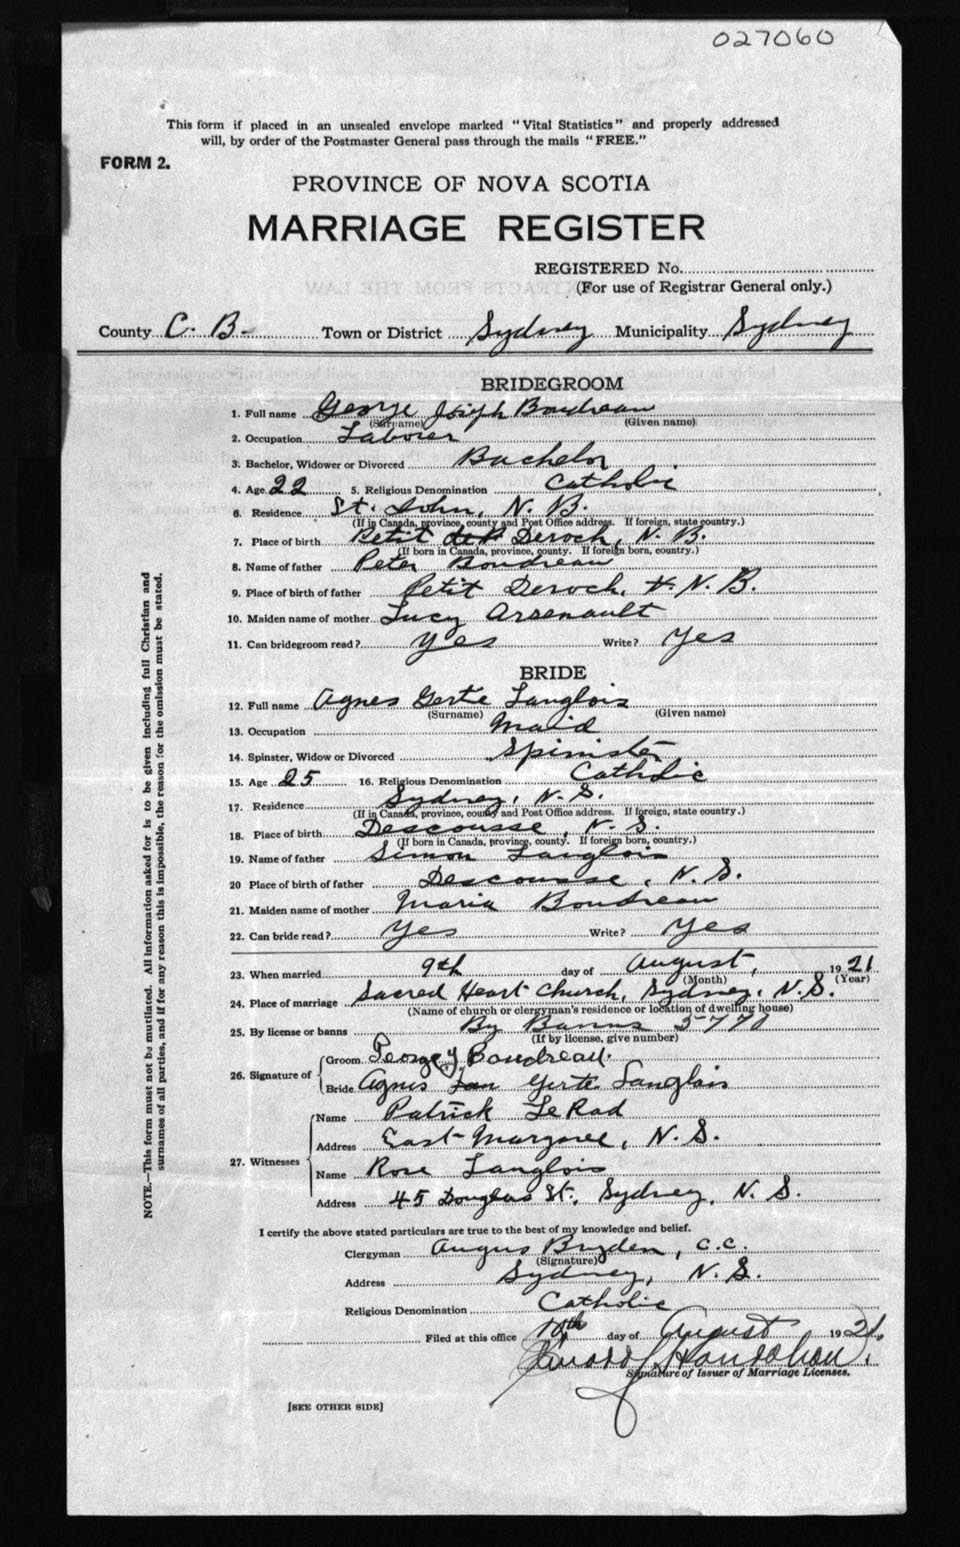 027060
This form if placed in an unsealed envelope marked "Vital Statistics" and properly addressed
will, by order of the Postmaster General pass through the mails "FREE."
FORM 2.
PROVINCE OF NOVA SCOTIA
MARRIAGE REGISTER
REGISTERED No.
(For use of Registrar General only.)
County C. B. Town or District Sydney Municipality Sydney
BRIDEGROOM
1. Full name George Joseph Boudreau
(Surname) (Given name)
2. Occupation Laborer
3. Bachelor, Widower or Divorced Bachelor
4. Age 22 5. Religious Denomination Catholic
6. Residence St. John, N. B.
(If in Canada, province, county and Post Office address. If foreign, state country.)
7. Place of birth Petit Deroch, N. B.
(If born in Canada, province, county. If foreign born, country.)
8. Name of father Peter Boudreau
9. Place of birth of father Petit Deroch, N. B.
10. Maiden name of mother Lucy Arsenault
11. Can bridegroom read? Yes Write? Yes
BRIDE
12. Full name Agnes Gerte Langlois
(Surname) (Given name)
13. Occupation Maid
14. Spinster, Widow or Divorced Spinister
15. Age 25 16. Religious Denomination Catholic
17. Residence Sydney, N. S.
(If in Canada, province, county and Post Office address. If foreign, state country.)
18. Place of birth Descousse, N. S.
(If born in Canada, province, county. If foreign born, country.)
19. Name of father Simon Langlois
20 Place of birth of father Descousse, N. S.
21. Maiden name of mother Maria Boudreau
22. Can bride read? Yes Write? Yes
23. When married 9th day of August, 1921
(Month) (Year)
24. Place of marriage Sacred Heart Church, Sydney, N. S.
(Name of church or clergyman's residence or location of dwelling house)
25. By license or banns By Banns
(If by license, give number)
26. Signature of Groom George J. Boudreau.
Bride Agnes Gerte Langlois
27. Witnesses Name Patrick LeRad
Address East Margaree, N. S.
Name Rose Langlois
Address 45 Douglas St. Sydney, N. S.
I certify the above stated particulars are true to the best of my knowledge and belief.
Clergyman Angus Bryden, C.C.
(Signature)
Address Sydney, N. S.
Religious Denomination Catholic
Filed at this office day of August 1921
Signature of Issuer of Marriage Licenses.
[SEE OTHER SIDE]
NOTE.—This form must not be mutilated. All information asked for is to be given including full Christian and
surnames of all parties, and if for any reason this is impossible, the reason for the omission must be stated.